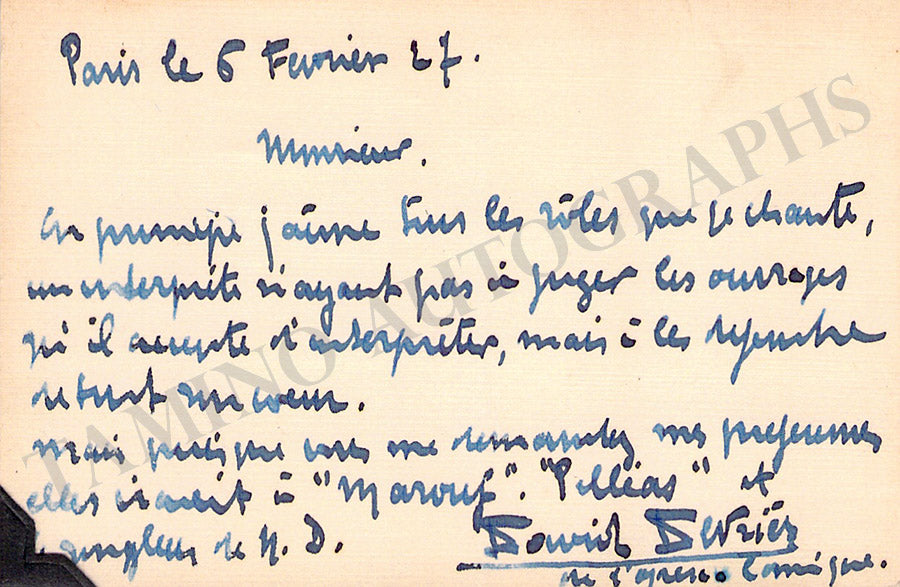 Paris le 6 Fevrier 27.
Monsieur.
En principe j'aime tous les rôles que je chante,
un interprète n'ayant pas à juger les ouvrages
qu'il accepte d'interpréter, mais à les défendre
de tout son coeur.
Mais puisque vous me demandez mes préférences
elles iraient à "Marouf". "Pelléas" et
Jongleur de N. D.
David Devriès
de l'Opéra Comique.
TAMINO AUTOGRAPHS